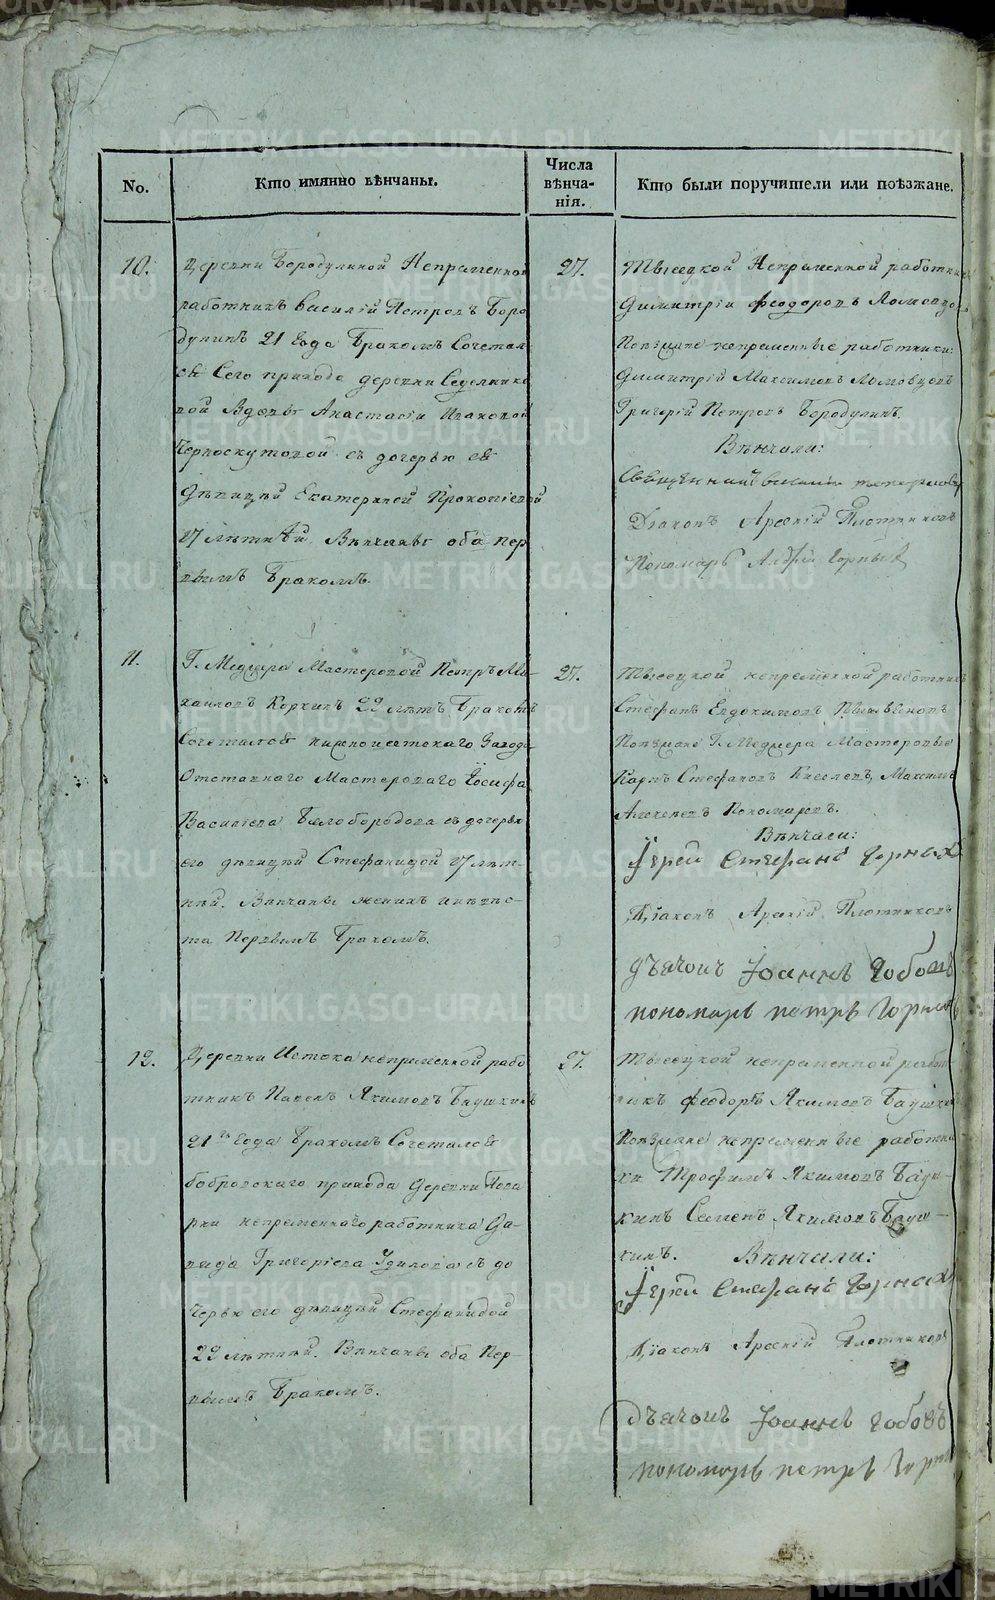 No.
Кто имянно вѣнчаны.
Числа
вѣнча-
нія.
Кто были поручители или поѣзжане.
10.
Деревни Бородулиной Непременной
работникъ Василій Петровъ Боро
дулинъ 21 года Бракомъ Сочетал
ся Сего прихода деревни Седельнико
вой Вдовы Анастасіи Ивановой
Черноскутовой съ дочерью ея
Дѣвицей Екатериной Прокопіевой
17 лѣтней. Вѣнчаны оба пер
вымъ Бракомъ.
27.
Тысецкой Непременной работникъ
Димитрій Феодоровъ
Поѣзжане непременные работники:
Димитрій Максимовъ Ломовцовъ
Григорій Петровъ Бородулинъ.
Вѣнчали:
Священникъ Василій
Діаконъ Арсеній Плотниковъ
Пономарь Андрей Горныхъ
11.
Г. Меджера Мастеровой Петръ Ми-
хаиловъ Коркинъ 22 лѣтъ Бракомъ
Сочетался нижноисетскаго Завода
Отставнаго Мастероваго Іосифа
Василіева Белобородова съ дочерью
его дѣвицей Стефанидой 17 лѣт-
ней. Вѣнчаны женихъ и невѣс-
та Первымъ Бракомъ.
27.
Тысецкой непременной работникъ
Стефанъ Евдокимовъ
Поѣзжане Г. Меджера Мастеровые
Карпъ Стефановъ Киселевъ, Максимъ
Алексеевъ Пономаревъ.
Вѣнчали:
Іерей Стефанъ Горныхъ
Діаконъ Арсеній Плотниковъ
дьячокъ Іоаннъ
пономарь петръ Горныхъ
12.
Деревни Истока непременной рабо
тникъ Павелъ Якимовъ Баушкинъ
21го года Бракомъ Сочетался
бобровскаго прихода деревни
непременнаго работника Да-
вида Григоріева съ до
черью его дѣвицей Стефанидой
22 лѣтней. Вѣнчаны оба Пер-
вымъ Бракомъ.
27.
Тысецкой непременной работ-
никъ Феодоръ Якимовъ Баушкинъ
Поѣзжане непременные работни
ки Трофимъ Якимовъ Бауш-
кинъ Семенъ Якимовъ Бауш-
кинъ. Вѣнчали:
Іерей Стефанъ Горныхъ
Діаконъ Арсеній Плотниковъ
дьячокъ Іоаннъ
пономарь петръ Горныхъ
METRIKI.GASO-URAL.RU